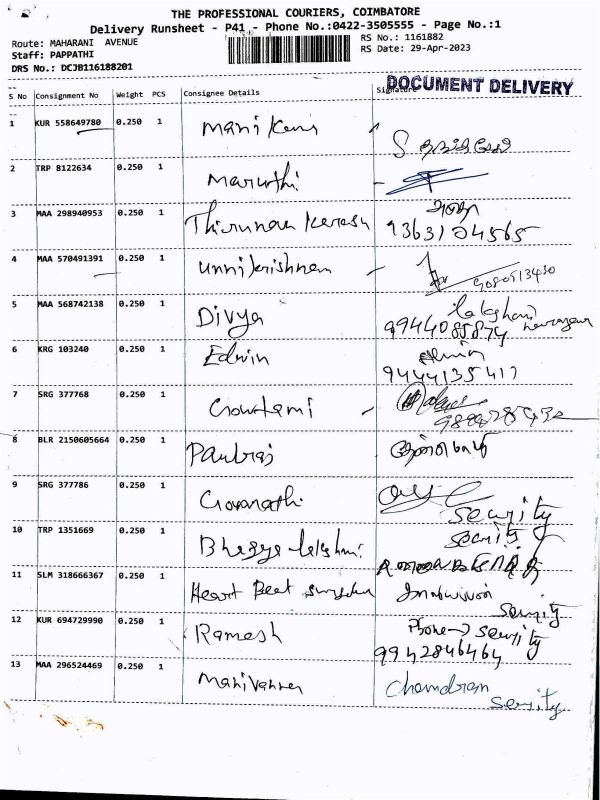 THE PROFESSIONAL COURIERS, COIMBATORE
Delivery Runsheet - P41 - Phone No.:0422-3505555 - Page No.:1
Route: MAHARANI AVENUE
RS No.: 1161882
Staff: PAPPATHI
RS Date: 29-Apr-2023
DRS No.: DCJB116188201
DOCUMENT DELIVERY
S No Consignment No Weight PCS Consignee Details Signature
1 KUR 558649780 0.250 1
2 TRP 8122634 0.250 1 Maruthi
3 MAA 298940953 0.250 1
9363124565
4 MAA 570491391 0.250 1 Unnikrishnan
5 MAA 568742138 0.250 1 Divya
6 KRG 103240 0.250 1 Edwin
7 SRG 377768 0.250 1 Gowtami
8 BLR 2150605664 0.250 1 Paulraj
9 SRG 377786 0.250 1
Security
10 TRP 1351669 0.250 1 Bhagya lakshmi Security
11 SLM 318666367 0.250 1 Heart Beat
Security
12 KUR 694729990 0.250 1 Ramesh Phone → Security
9942846464
13 MAA 296524469 0.250 1 Manivannan Chandran
Security